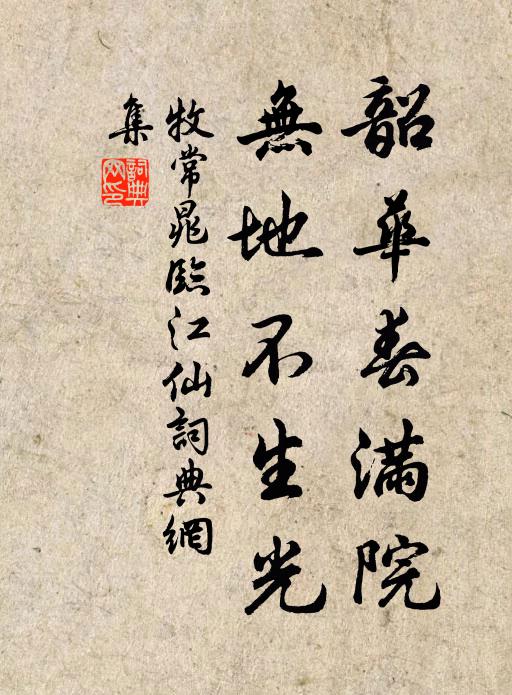 韶華春滿院
無地不生光
牧常晁臨江仙詞典網
集
詞典網印